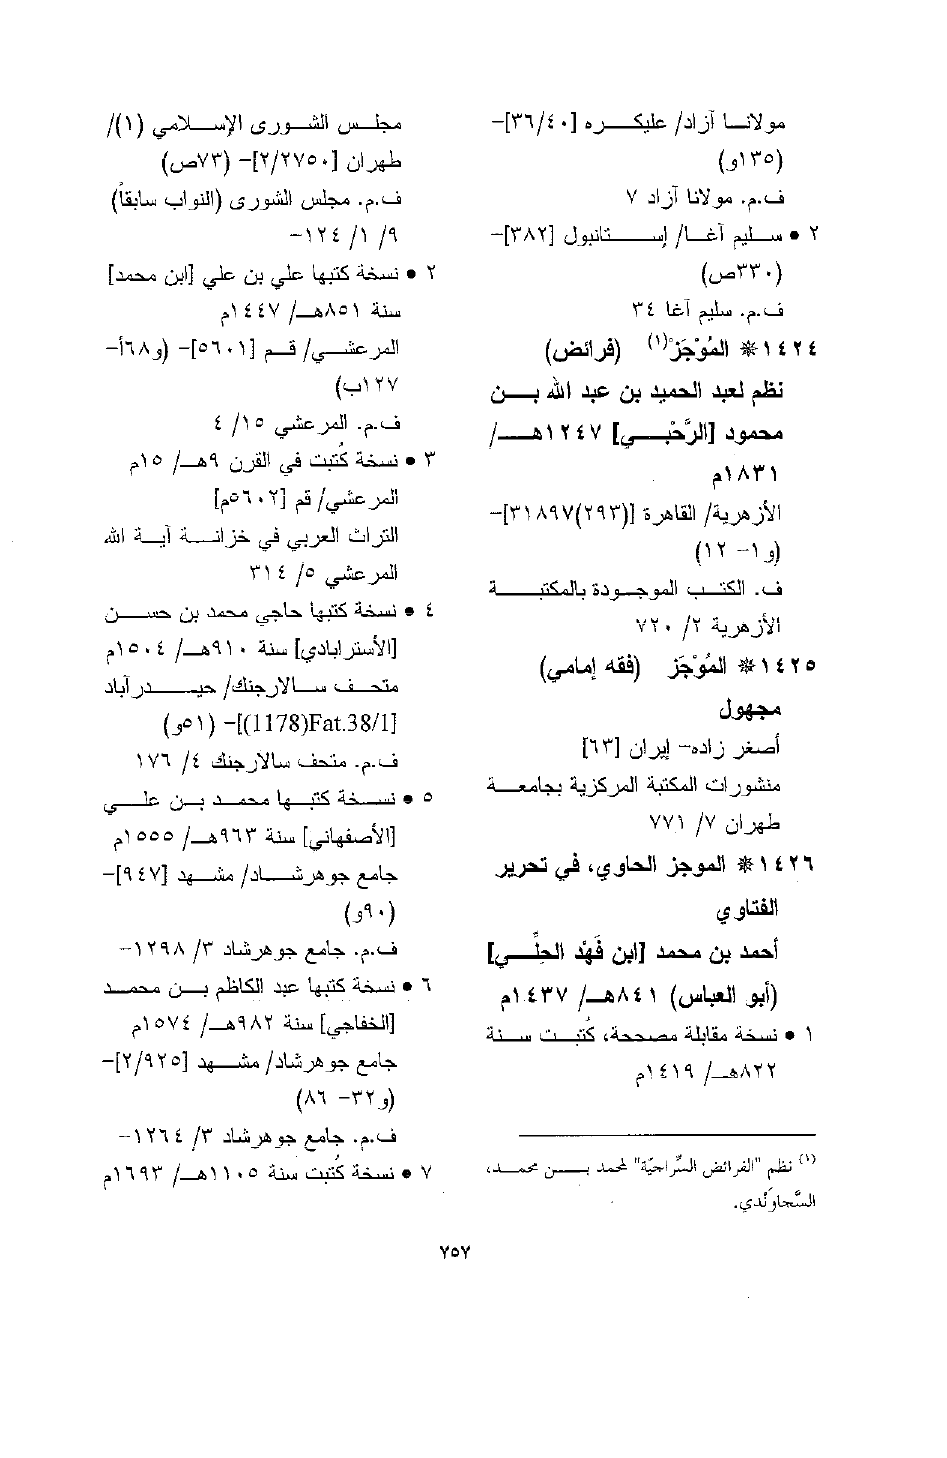 مولانا آزاد/ عليكره [٣٦/٤٠]-
(١٣٥و)
ف.م. مولانا آزاد ٧
٢ • سليم آغا/ إستانبول [٣٨٢]-
(٣٣٠ص)
ف.م. سليم آغا ٣٤
١٤٢٤* المُوْجَز(١) (فرائض)
نظم لعبد الحميد بن عبد الله بن
محمود [الرَّحْبي] ١٢٤٧هـ/
١٨٣١م
الأزهرية/ القاهرة [(٢٩٣)٣١٨٩٧]-
(و١- ١٢)
ف. الكتب الموجودة بالمكتبة
الأزهرية ٢/ ٧٢٠
١٤٢٥* المُوْجَز (فقه إمامي)
مجهول
أصغر زاده- إيران [٦٣]
منشورات المكتبة المركزية بجامعة
طهران ٧/ ٧٧١
١٤٢٦* الموجز الحاوي، في تحرير
الفتاوي
أحمد بن محمد [ابن فَهْد الحِلِّي]
(أبو العباس) ٨٤١هـ/ ١٤٣٧م
١ • نسخة مقابلة مصححة، كُتبت سنة
٨٢٢هـ/ ١٤١٩م
(١) نظم "الفرائض السِّراجيّة" لمحمد بن محمد،
السَّجاوَندي.
مجلس الشورى الإسلامي (١)/
طهران [٢/٢٧٥٠]- (٧٣ص)
ف.م. مجلس الشورى (النواب سابقاً)
٩/ ١/ ١٢٤-
٢ • نسخة كتبها علي بن علي [ابن محمد]
سنة ٨٥١هـ/ ١٤٤٧م
المرعشي/ قم [٥٦٠١]- (و٦٨أ-
١٢٧ب)
ف.م. المرعشي ١٥/ ٤
٣ • نسخة كُتبت في القرن ٩هـ/ ١٥م
المرعشي/ قم [٥٦٠٢م]
التراث العربي في خزانة آية الله
المرعشي ٥/ ٣١٤
٤ • نسخة كتبها حاجي محمد بن حسن
[الأسترابادي] سنة ٩١٠هـ/ ١٥٠٤م
متحف سالارجنك/ حيدرآباد
[(1178)Fat.38/1]- (٥١و)
ف.م. متحف سالارجنك ٤/ ١٧٦
٥ • نسخة كتبها محمد بن علي
[الأصفهاني] سنة ٩٦٣هـ/ ١٥٥٥م
جامع جوهرشاد/ مشهد [٩٤٧]-
(٩٠و)
ف.م. جامع جوهرشاد ٣/ ١٢٩٨-
٦ • نسخة كتبها عبد الكاظم بن محمد
[الخفاجي] سنة ٩٨٢هـ/ ١٥٧٤م
جامع جوهرشاد/ مشهد [٢/٩٢٥]-
(و٣٢- ٨٦)
ف.م. جامع جوهرشاد ٣/ ١٢٦٤-
٧ • نسخة كُتبت سنة ١١٠٥هـ/ ١٦٩٣م
٧٥٧